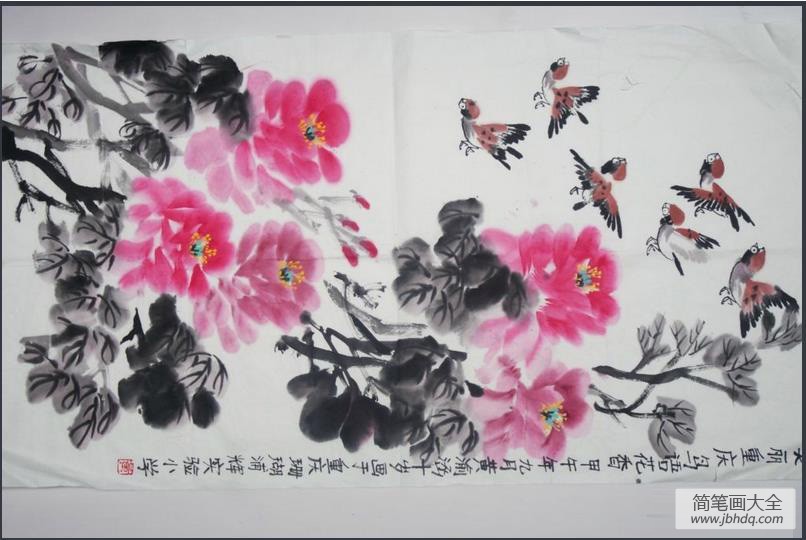 美丽重庆鸟语花香甲午年九月黄渝汐十岁画于重庆珊瑚浦辉实验小学
简笔画大全
www.jbhdq.com